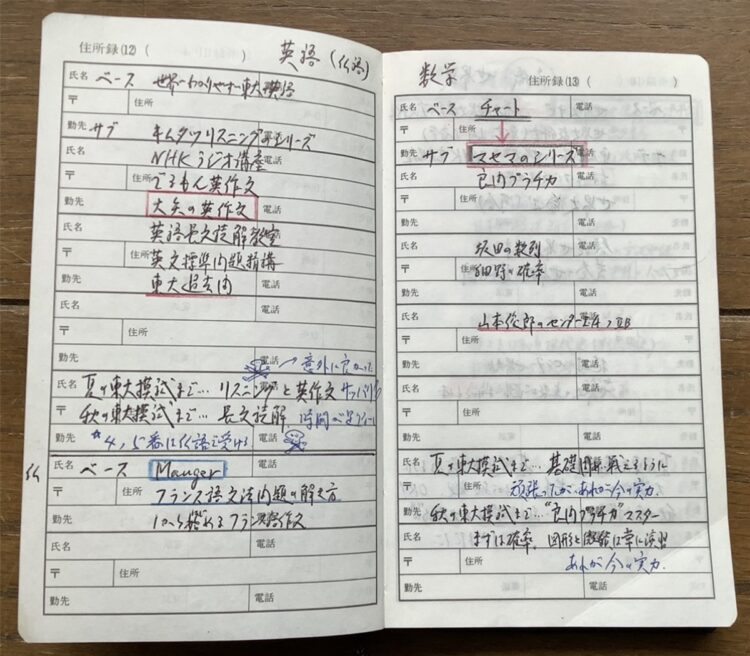 住所録(12)(　　　) 英語(仏語)
氏名 ベース 世界一わかりやすい東大英語
〒 住所
勤先 サブ キムタツリスニングのシリーズ 電話
氏名 NHKラジオ講座 電話
〒 住所 でるもん英作文
勤先 大矢の英作文 電話
氏名 英語長文読解教室 電話
〒 住所 英文標準問題精講
勤先 東大過去問 電話
氏名 電話
〒 住所
勤先 電話 → 意外に良かった
氏名 夏の東大模試まで… リスニングと英作文 電話
〒 秋の東大模試まで… 長文読解 時間が
勤先 *4,5番は仏語で受ける 電話
仏 氏名 ベース Mauger 電話
〒 住所 フランス語文法問題の解き方
勤先 1から始めるフランス語作文 電話
氏名 電話
〒 住所
勤先 電話
数学 住所録(13)(　　　)
氏名 ベース チャート 電話
〒 住所 ↓
勤先 サブ マセマのシリーズ 電話
氏名 良問プラチカ 電話
〒 住所
勤先 電話
氏名 坂田の数列 電話
〒 住所 細野の確率
勤先 電話
氏名 山本俊郎のセンターⅠA,ⅡB 電話
〒 住所
勤先 電話
氏名 電話
〒 住所
勤先 電話
氏名 夏の東大模試まで… 基礎固め 戦えるように 電話
〒 住所 頑張ったが、あれが今の実力.
勤先 秋の東大模試まで… "良問プラチカ"マスター 電話
氏名 まずは確率、図形と微積は常に演習 電話
〒 住所 あれが今の実力.
勤先 電話